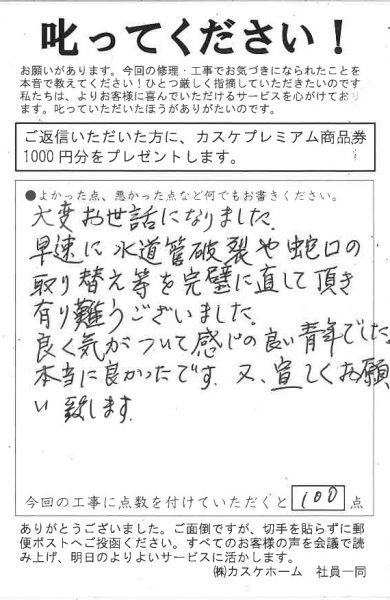 叱ってください！
お願いがあります。今回の修理・工事でお気づきになられたことを
本音で教えてください！ひとつ厳しく指摘していただきたいのです
私たちは、よりお客様に喜んでいただけるサービスを心がけており
ます。叱っていただいたほうがありがたいのです。
ご返信いただいた方に、カスケプレミアム商品券
1000円分をプレゼントします。
●よかった点、悪かった点など何でもお書きください。
大変お世話になりました。
早速に水道管破裂や蛇口の
取り替え等を完璧に直して頂き
有り難うございました。
良く気がついて感じの良い青年でした。
本当に良かったです。又、宜しくお願
い致します。
今回の工事に点数を付けていただくと 100 点
ありがとうございました。ご面倒ですが、切手を貼らずに郵
便ポストへご投函ください。すべてのお客様の声を会議で読
み上げ、明日のよりよいサービスに活かします。
㈱カスケホーム 社員一同